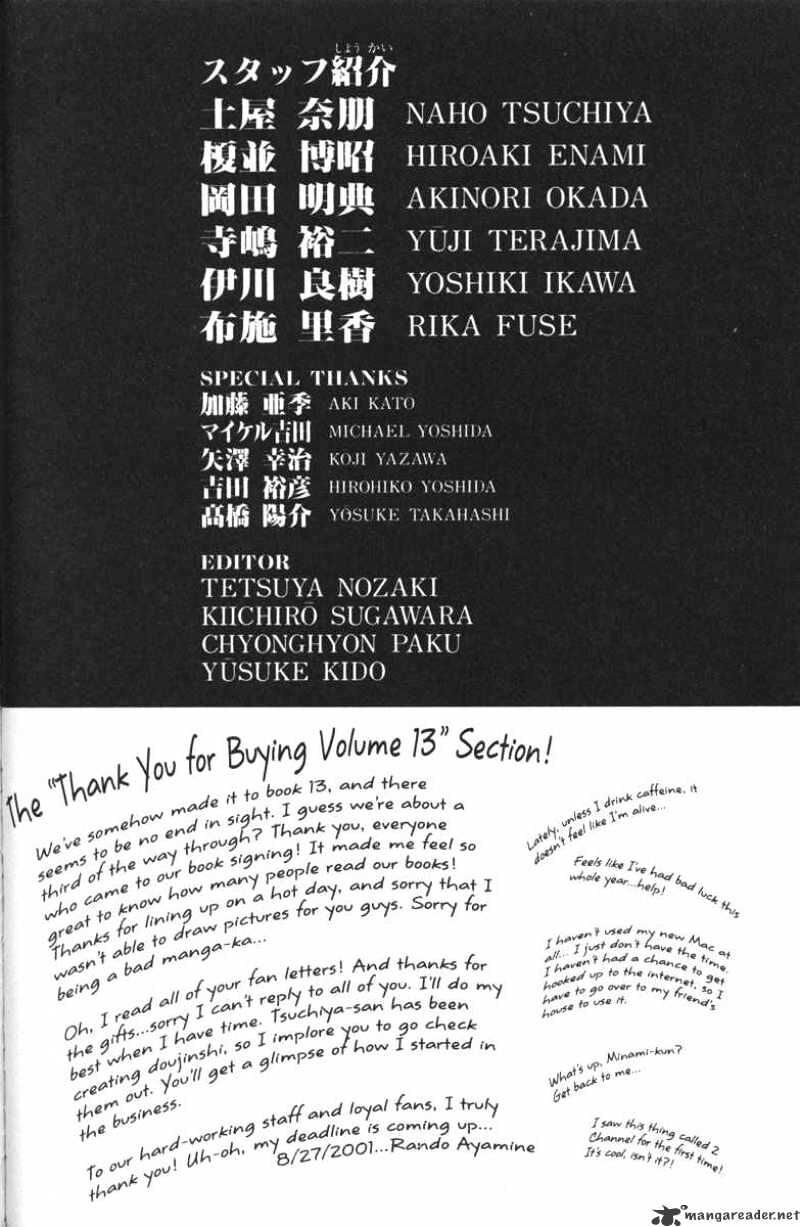 しょうかい
スタッフ紹介
土屋 奈朋 NAHO TSUCHIYA
榎並 博昭 HIROAKI ENAMI
岡田 明典 AKINORI OKADA
寺嶋 裕二 YŪJI TERAJIMA
伊川 良樹 YOSHIKI IKAWA
布施 里香 RIKA FUSE
SPECIAL THANKS
加藤 亜季 AKI KATO
マイケル吉田 MICHAEL YOSHIDA
矢澤 幸治 KOJI YAZAWA
吉田 裕彦 HIROHIKO YOSHIDA
髙橋 陽介 YŌSUKE TAKAHASHI
EDITOR
TETSUYA NOZAKI
KIICHIRŌ SUGAWARA
CHYONGHYON PAKU
YŪSUKE KIDO
The "Thank You for Buying Volume 13" Section!
We've somehow made it to book 13, and there
seems to be no end in sight. I guess we're about a
third of the way through? Thank you, everyone
who came to our book signing! It made me feel so
great to know how many people read our books!
Thanks for lining up on a hot day, and sorry that I
wasn't able to draw pictures for you guys. Sorry for
being a bad manga-ka...
Oh, I read all of your fan letters! And thanks for
the gifts...sorry I can't reply to all of you. I'll do my
best when I have time. Tsuchiya-san has been
creating doujinshi, so I implore you to go check
them out. You'll get a glimpse of how I started in
the business.
To our hard-working staff and loyal fans, I truly
thank you! Uh-oh, my deadline is coming up...
8/27/2001...Rando Ayamine
Lately, unless I drink caffeine, it
doesn't feel like I'm alive...
Feels like I've had bad luck this
whole year...help!
I haven't used my new Mac at
all... I just don't have the time.
I haven't had a chance to get
hooked up to the internet, so I
have to go over to my friend's
house to use it.
What's up, Minami-kun?
Get back to me...
I saw this thing called 2
Channel for the first time!
It's cool, isn't it?!
mangareader.net